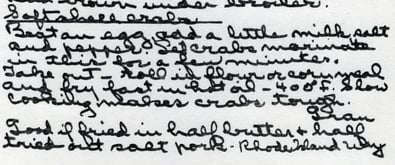 brown under broiler.
Softshell crabs
Beat an egg, add a little milk, salt
and pepper. Let crabs marinate
in this for a few minutes.
Take out - roll in flour or cornmeal
and fry fast in hot oil - 400°F. Slow
cooking makes crabs tough.
Fran
Good if fried in half butter & half
tried out salt pork - Rhode Island Way